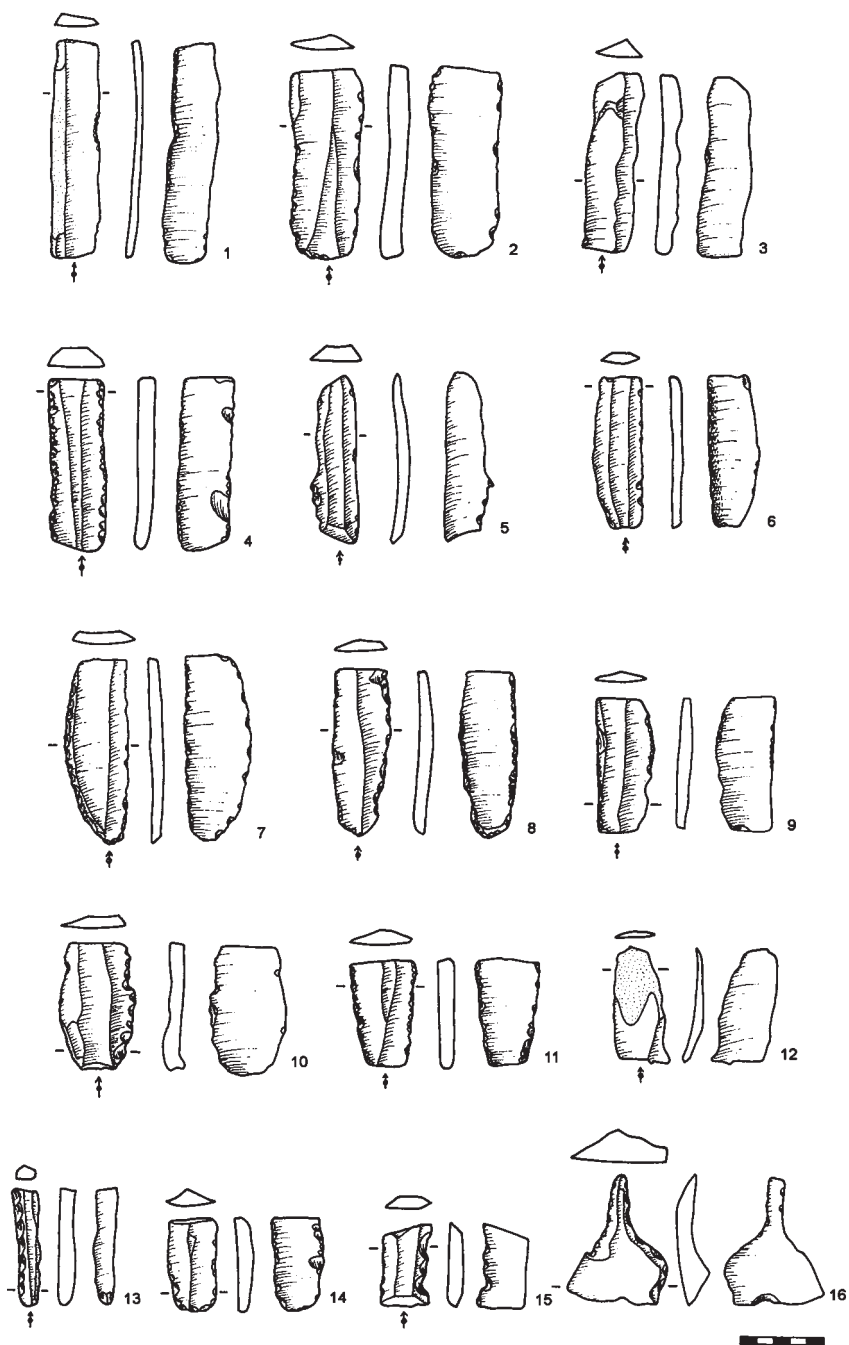 1 2 3
4 5 6
7 8 9
10 11 12
13 14 15 16